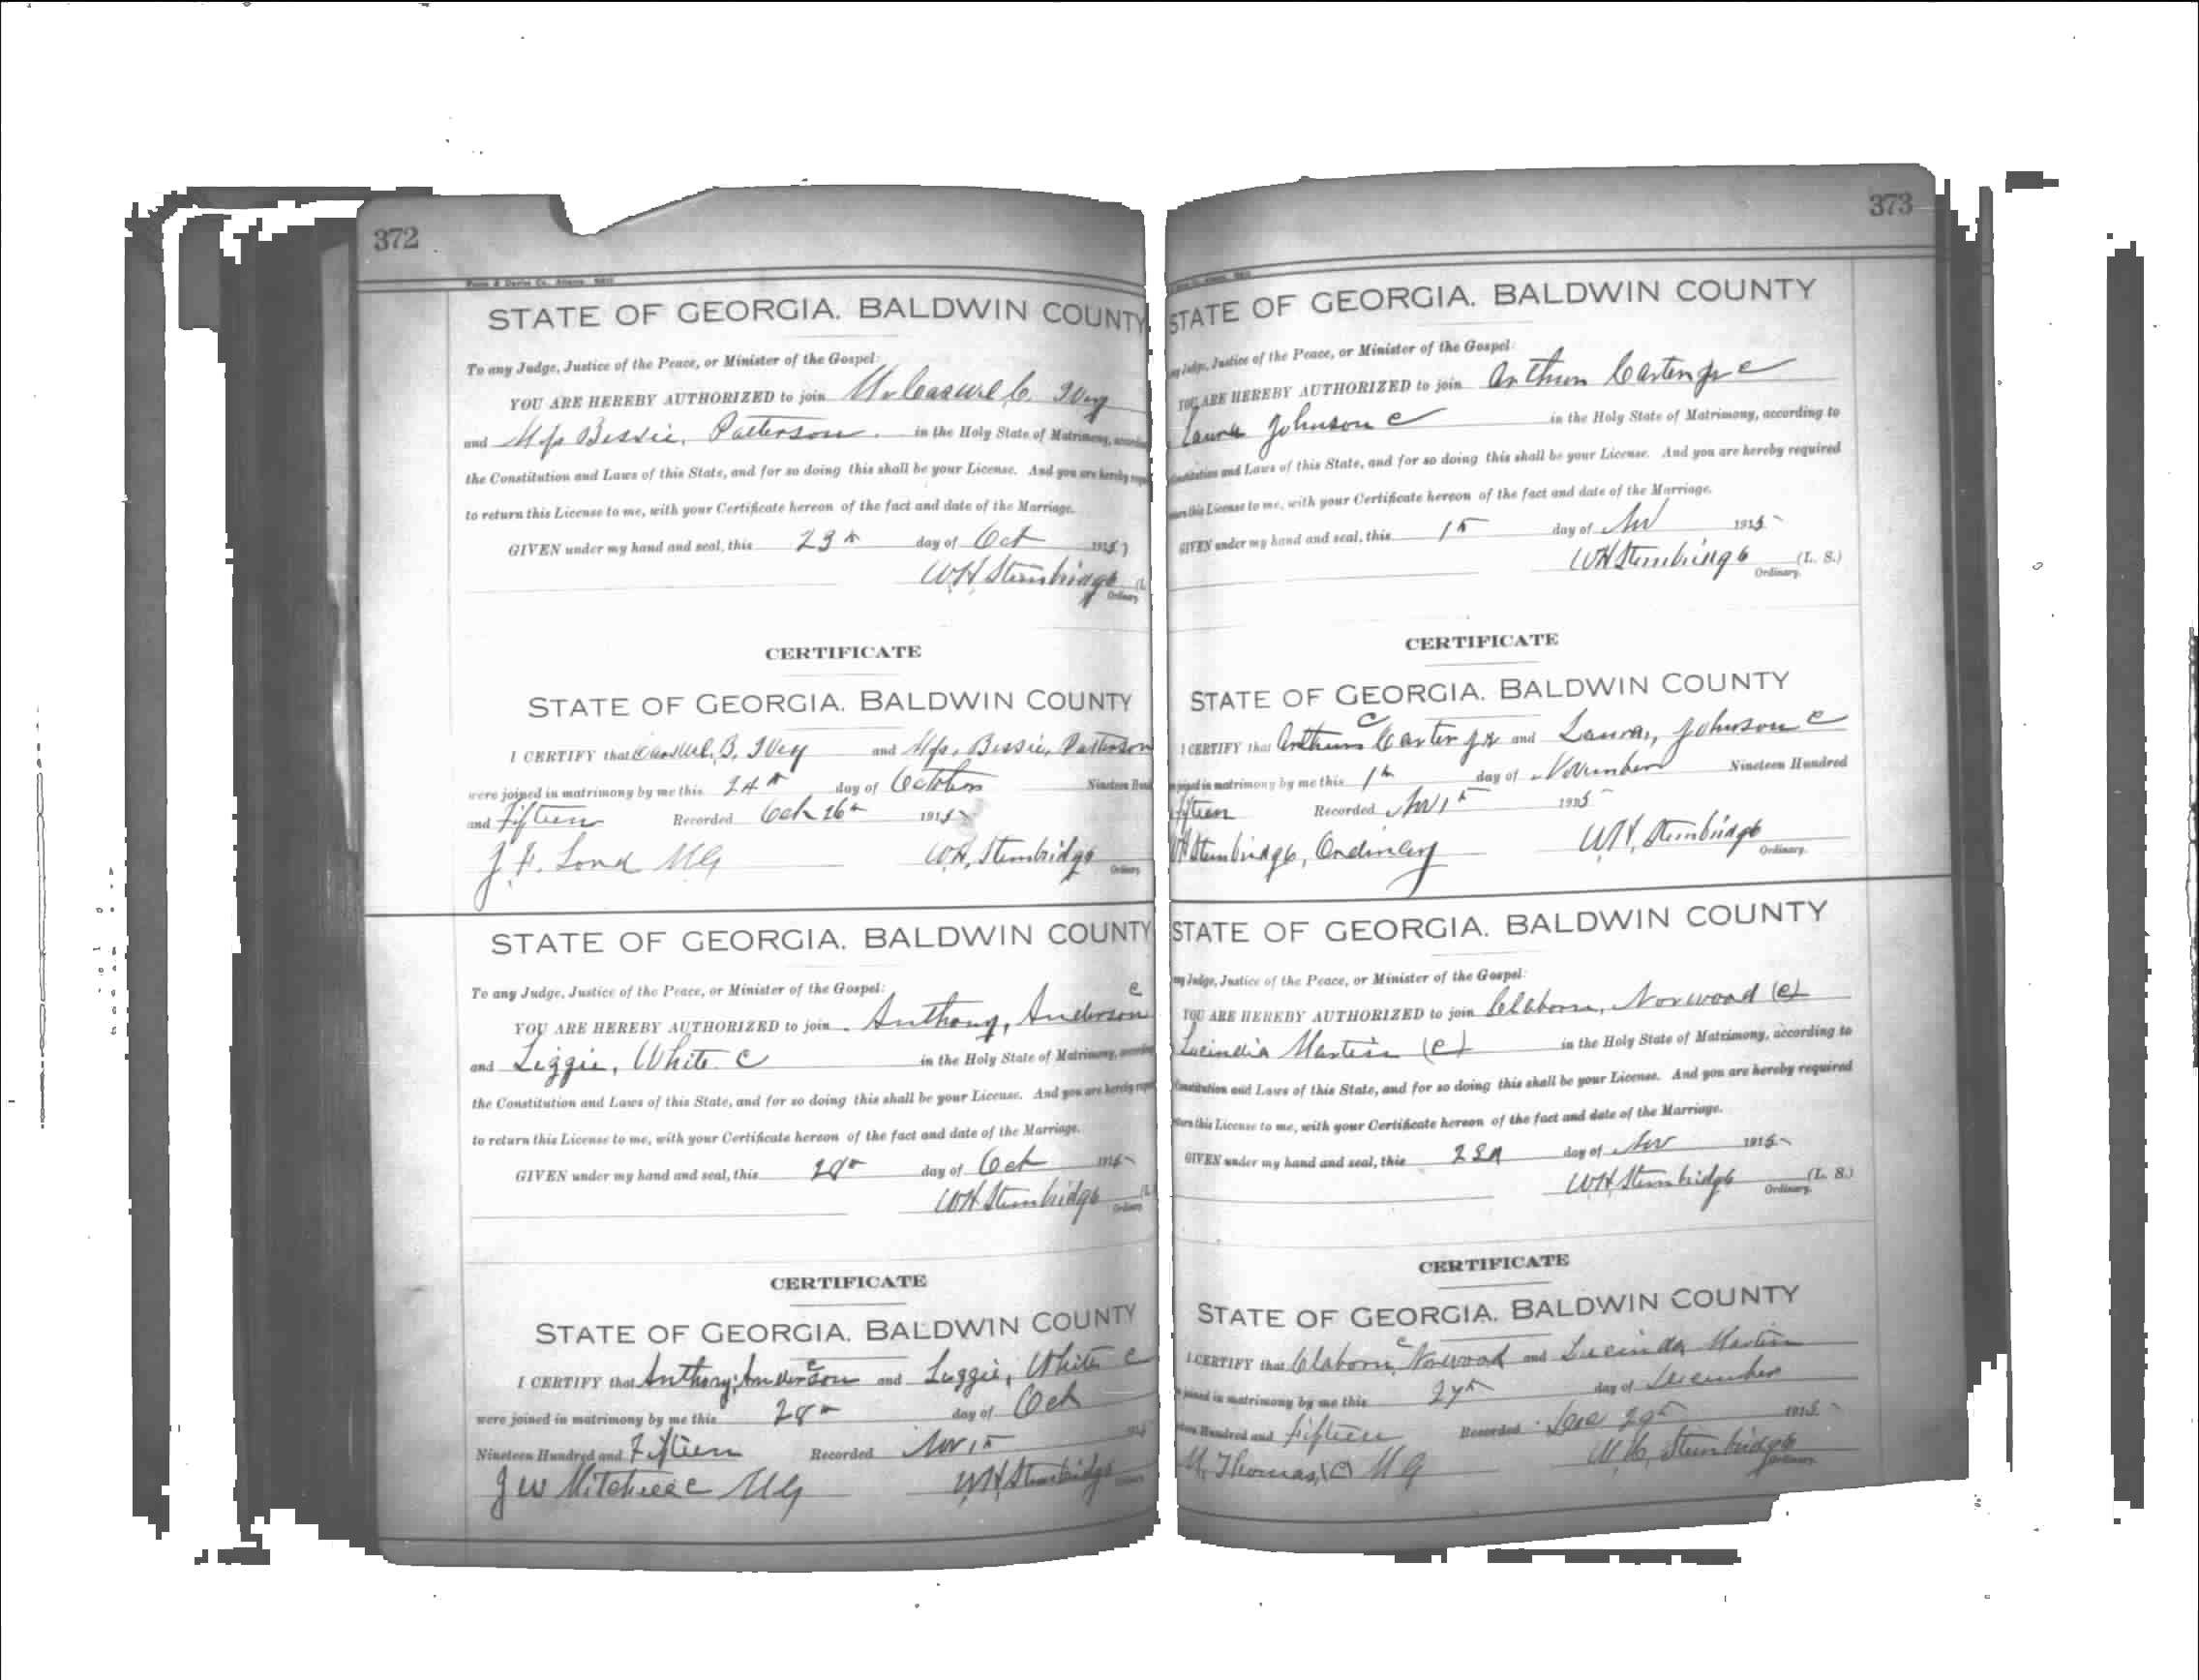 372
STATE OF GEORGIA. BALDWIN COUNTY
To any Judge, Justice of the Peace, or Minister of the Gospel:
YOU ARE HEREBY AUTHORIZED to join Mr C. Ivey
and Miss Bessie, Patterson. in the Holy State of Matrimony,
the Constitution and Laws of this State, and for so doing this shall be your License. And you are hereby
to return this License to me, with your Certificate hereon of the fact and date of the Marriage.
GIVEN under my hand and seal, this 23 day of Oct 1915
WH Stembridge
Ordinary
CERTIFICATE
STATE OF GEORGIA. BALDWIN COUNTY
I CERTIFY that B. Ivey and Miss, Bessie, Patterson
were joined in matrimony by me this 24th day of October Nineteen
and Fifteen Recorded Oct 26th 1915
J. F. MG W.H, Stembridge
Ordinary
STATE OF GEORGIA. BALDWIN COUNTY
To any Judge, Justice of the Peace, or Minister of the Gospel:
YOU ARE HEREBY AUTHORIZED to join Anthony, Anderson c
and Lizzie, White c in the Holy State of Matrimony,
the Constitution and Laws of this State, and for so doing this shall be your License. And you are hereby
to return this License to me, with your Certificate hereon of the fact and date of the Marriage.
GIVEN under my hand and seal, this 28th day of Oct 1915
WH Stembridge
Ordinary
CERTIFICATE
STATE OF GEORGIA. BALDWIN COUNTY
I CERTIFY that Anthony, Anderson c and Lizzie, White c
were joined in matrimony by me this 28th day of Oct
Nineteen Hundred and Fifteen Recorded Nov 1st
J W Mitchell c MG WH Stembridge
373
STATE OF GEORGIA. BALDWIN COUNTY
Judge, Justice of the Peace, or Minister of the Gospel:
YOU ARE HEREBY AUTHORIZED to join Arthur Carter Jr c
Laura Johnson c in the Holy State of Matrimony, according to
Constitution and Laws of this State, and for so doing this shall be your License. And you are hereby required
this License to me, with your Certificate hereon of the fact and date of the Marriage.
GIVEN under my hand and seal, this 1st day of Nov 1915
WH Stembridge (L. S.)
Ordinary.
CERTIFICATE
STATE OF GEORGIA. BALDWIN COUNTY
I CERTIFY that Arthur c Carter Jr and Laura, Johnson c
joined in matrimony by me this 1st day of November Nineteen Hundred
fifteen Recorded Nov 1st 1915
WH Stembridge, Ordinary W.H, Stembridge
Ordinary.
STATE OF GEORGIA. BALDWIN COUNTY
Judge, Justice of the Peace, or Minister of the Gospel:
YOU ARE HEREBY AUTHORIZED to join Claborn, Norwood (c)
Lucindia Martin (c) in the Holy State of Matrimony, according to
Constitution and Laws of this State, and for so doing this shall be your License. And you are hereby required
this License to me, with your Certificate hereon of the fact and date of the Marriage.
GIVEN under my hand and seal, this day of Nov 1915
WH Stembridge (L. S.)
Ordinary.
CERTIFICATE
STATE OF GEORGIA. BALDWIN COUNTY
I CERTIFY that Claborn, c Norwood and Lucinda Martin
joined in matrimony by me this 27th day of December
Hundred and fifteen Recorded Dec 29th 1915
M, Thomas, (C) M G W H, Stembridge